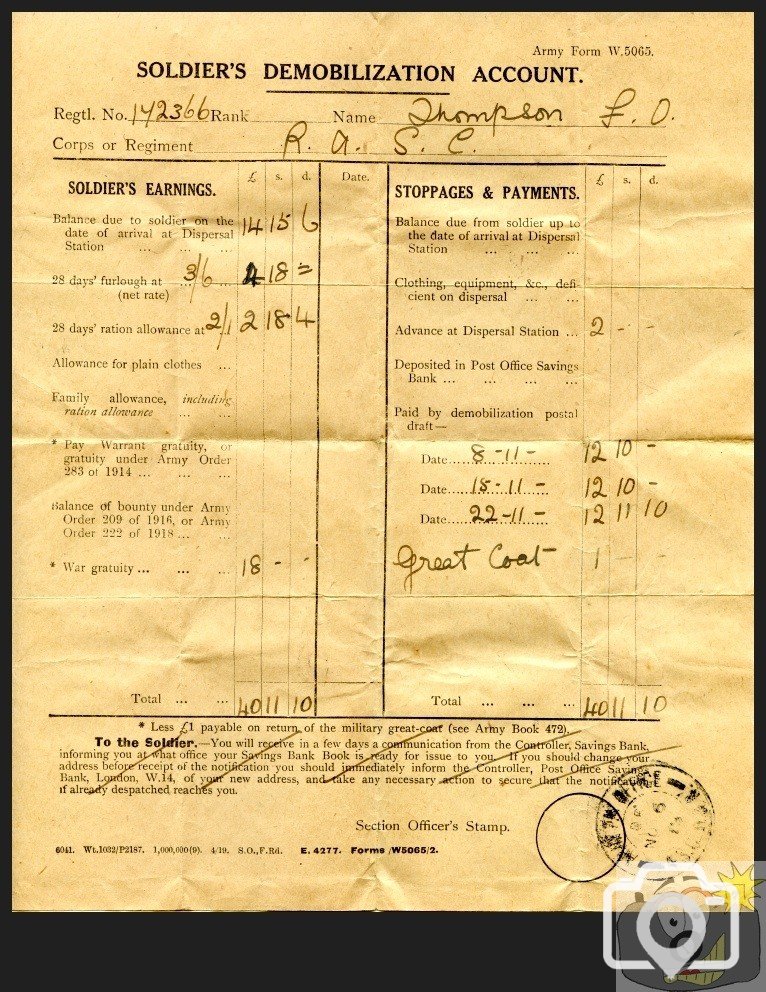 Army Form W.5065.
SOLDIER'S DEMOBILIZATION ACCOUNT.
Regtl. No. 142366 Rank Name Thompson F. O.
Corps or Regiment R. A. S. C.
SOLDIER'S EARNINGS. £ s. d. Date.
Balance due to soldier on the
date of arrival at Dispersal
Station ... ... 14 15 6
28 days' furlough at 3/6 4 18 =
(net rate)
28 days' ration allowance at 2/1 2 18 4
Allowance for plain clothes ...
Family allowance, including
ration allowance ... ...
* Pay Warrant gratuity, or
gratuity under Army Order
283 of 1914 ... ... ...
Balance of bounty under Army
Order 209 of 1916, or Army
Order 222 of 1918 ... ...
* War gratuity ... ... ... 18 - -
Total ... ... 40 11 10
STOPPAGES & PAYMENTS. £ s. d.
Balance due from soldier up to
the date of arrival at Dispersal
Station ... ... ...
Clothing, equipment, &c., defi-
cient on dispersal ... ...
Advance at Dispersal Station ... 2 - -
Deposited in Post Office Savings
Bank ... ... ... ...
Paid by demobilization postal
draft—
Date 8-11- 12 10 -
Date 15-11- 12 10 -
Date 22-11- 12 11 10
Great Coat 1 - -
Total ... ... ... 40 11 10
* Less £1 payable on return of the military great-coat (see Army Book 472).
To the Soldier.—You will receive in a few days a communication from the Controller, Savings Bank,
informing you at what office your Savings Bank Book is ready for issue to you. If you should change your
address before receipt of the notification you should immediately inform the Controller, Post Office Savings
Bank, London, W.14, of your new address, and take any necessary action to secure that the notification
if already despatched reaches you.
Section Officer's Stamp.
6041. Wt.1032/P2187. 1,000,000(9). 4/19. S.O.,F.Rd. E. 4277. Forms/W5065/2.